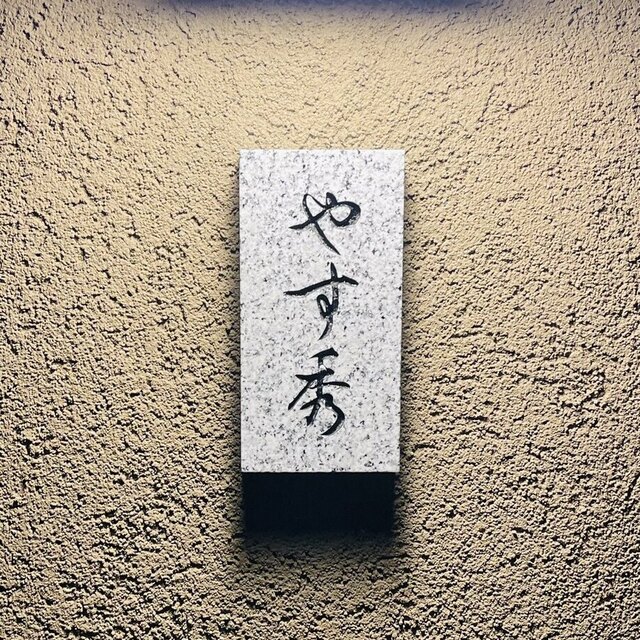 やす秀